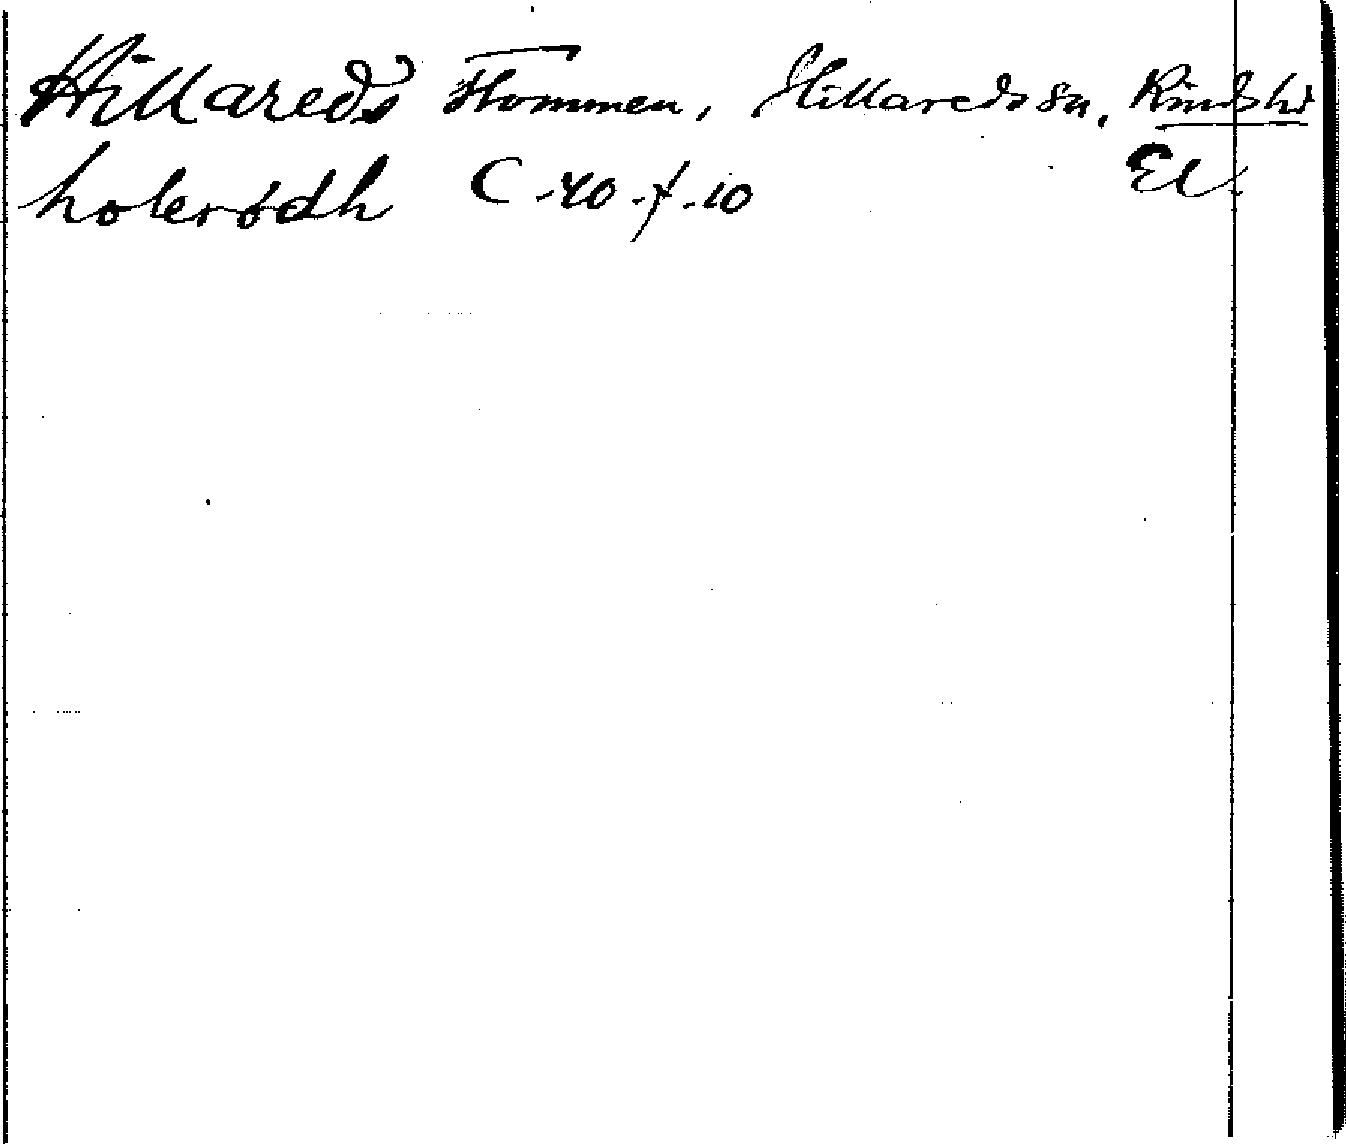 Hillareds Hommen, Hillareds sn, Kinds hd
holerødh C-40-f.-10 El.